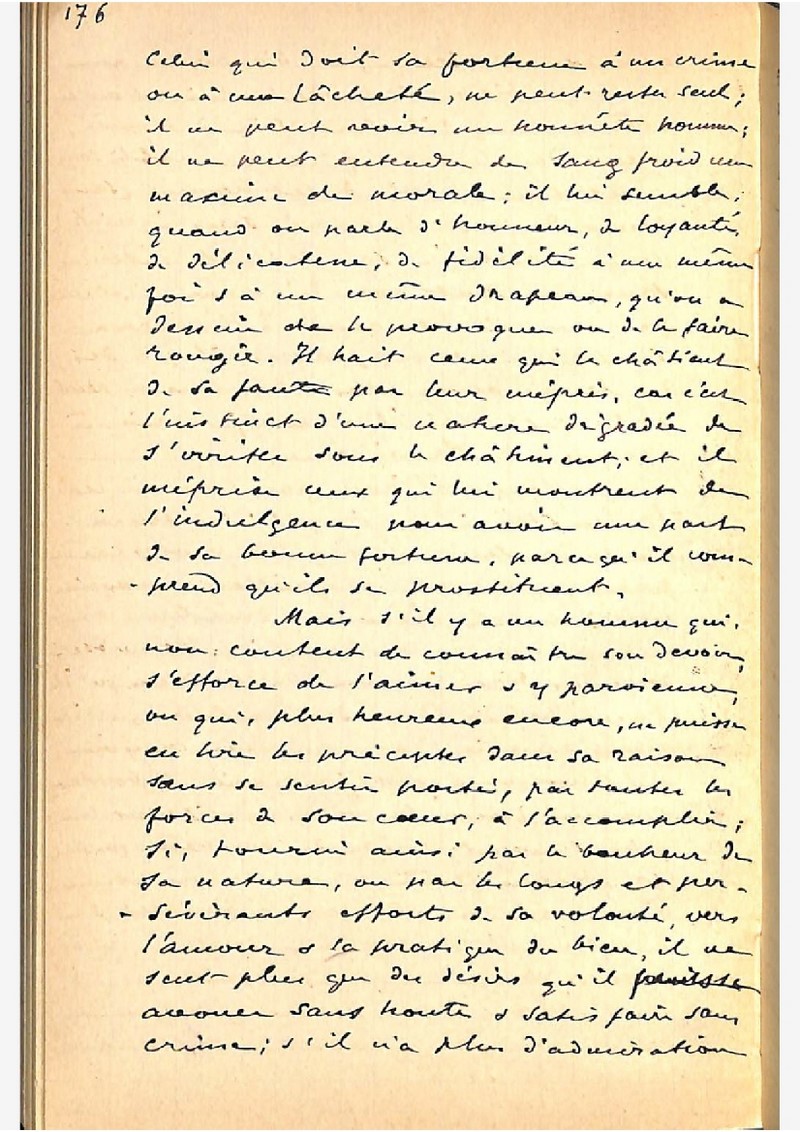 176
Celui qui doit sa fortune à un crime
ou à une lâcheté, ne peut rester seul ;
il ne peut revoir un honnête homme ;
il ne peut entendre de sang froid une
maxime de morale ; il lui semble,
quand on parle d'honneur, de loyauté,
de délicatesse, de fidélité à une même
foi & à un même drapeau, qu'on a
dessein de le provoquer ou de le faire
rougir. Il hait ceux qui le châtient
de sa faute par leur mépris, car c'est
l'instinct d'une nature dégradée de
s'irriter sous le châtiment ; et il
méprise ceux qui lui montrent de
l'indulgence pour avoir une part
de sa bonne fortune, parce qu'il com-
- prend qu'ils se prostituent.
Mais s'il y a un homme qui,
non content de connaître son devoir,
s'efforce de l'aimer & y parvienne,
ou qui, plus heureux encore, ne puisse
en lire les préceptes dans sa raison
sans se sentir porté, par toutes les
forces de son cœur, à l'accomplir ;
si, tourné ainsi par le bonheur de
sa nature, ou par les longs et per-
- sévérants efforts de sa volonté, vers
l'amour & la pratique du bien, il ne
sent plus que des désirs qu'il puisse
avouer sans honte & satisfaire sans
crime ; s'il n'a plus d'admiration